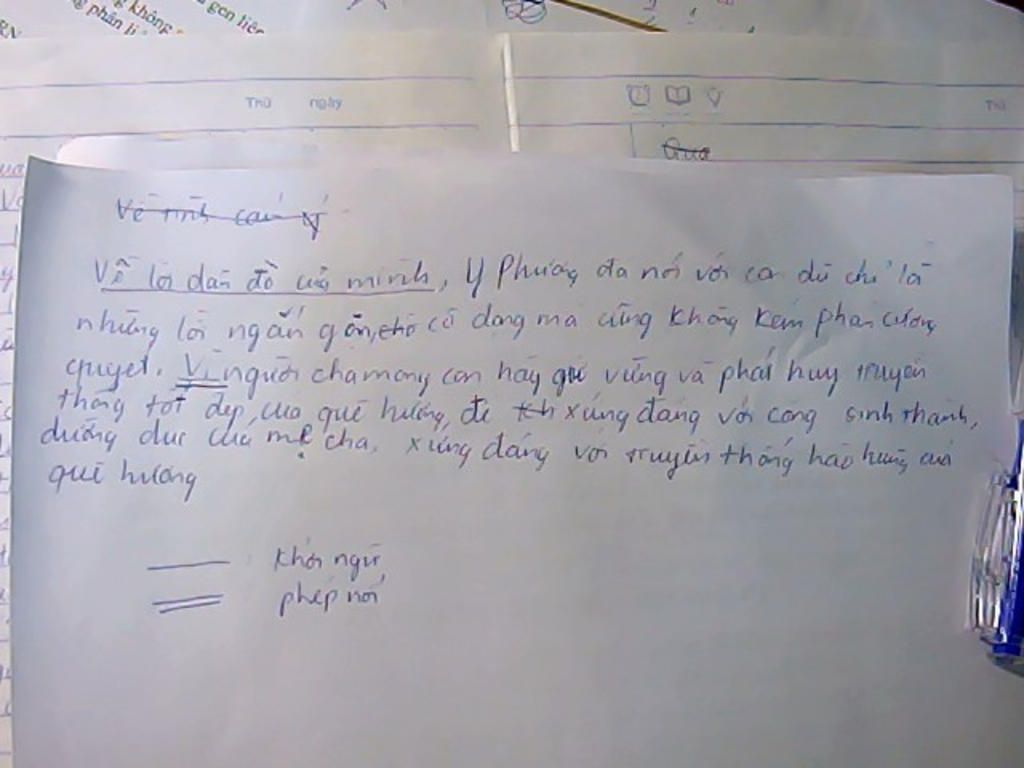 không
gen liên
g phân li
RN
Thứ ngày
Thứ
Qua
Về tình cảm Y
Về lời dặn dò của mình, Y Phương đã nói với con dù chỉ là
những lời ngắn gọn, cô đọng mà cũng không kém phần cương
quyết. Vì người cha mong con hãy giữ vững và phát huy truyền
thống tốt đẹp của quê hương, để xứng đáng với công sinh thành,
dưỡng dục của mẹ cha, xứng đáng với truyền thống hào hùng của
quê hương
khởi ngữ
phép nối